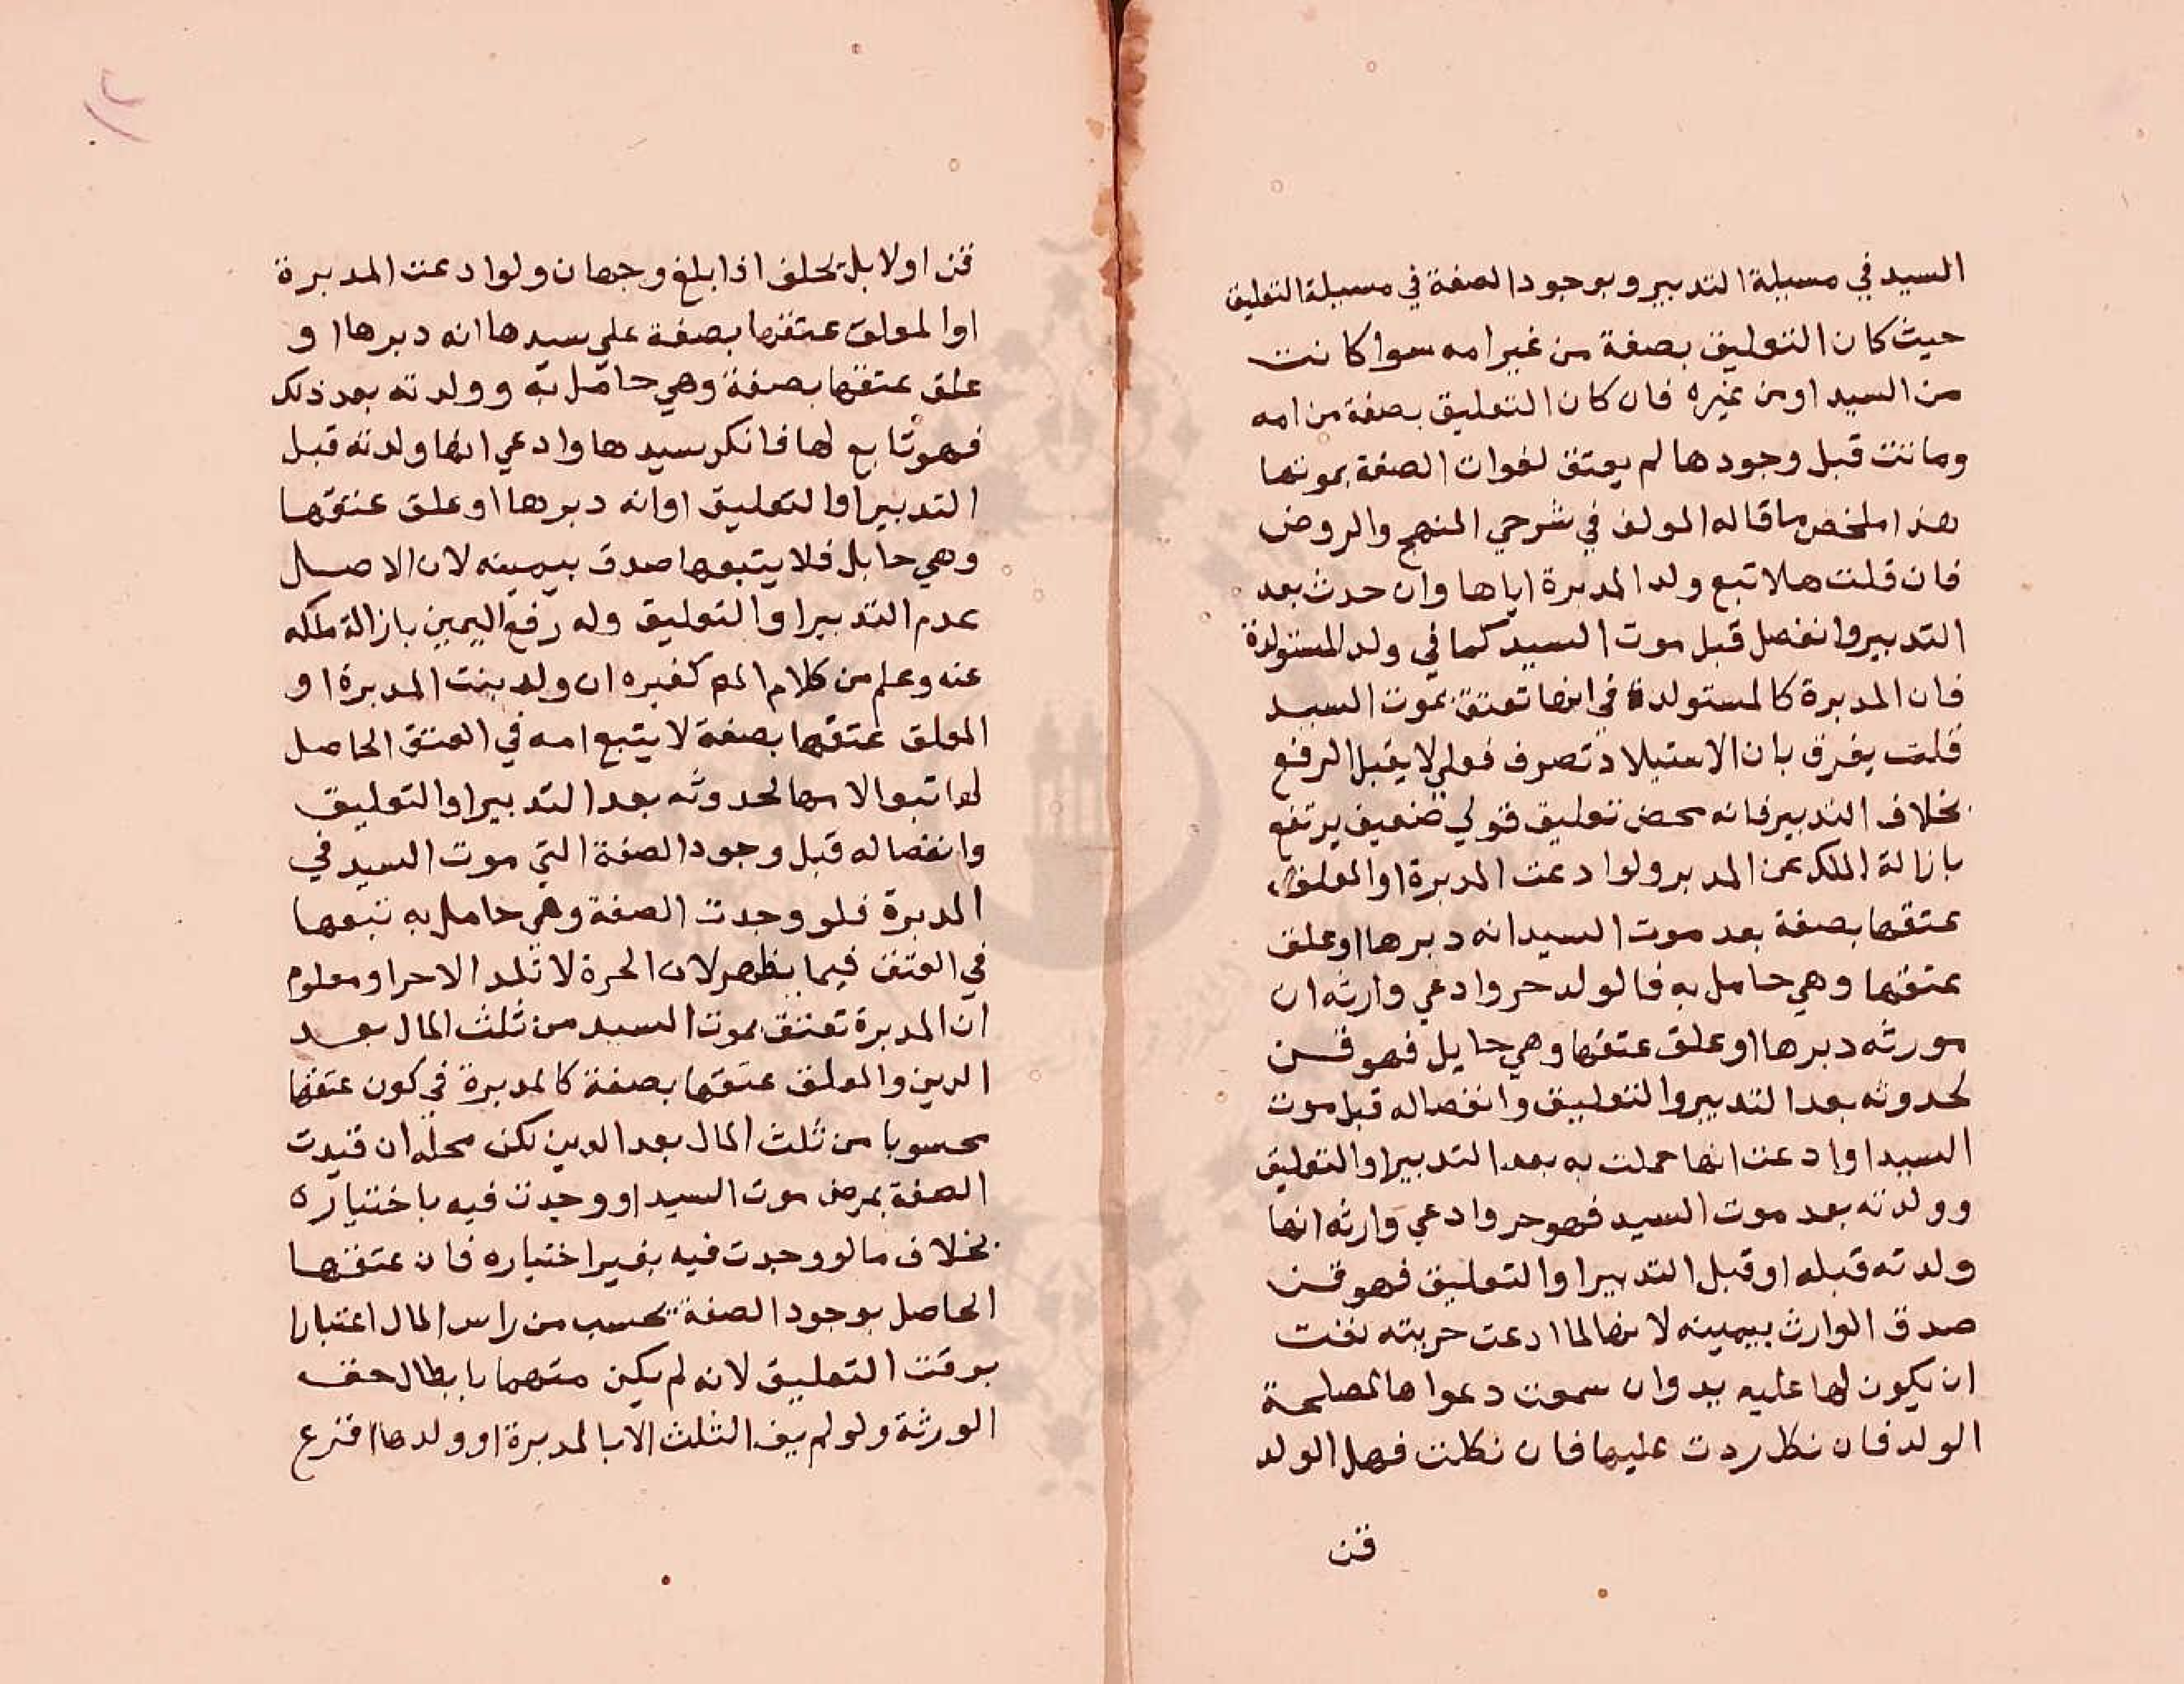 السيد في مسيلة التدبير وبوجود الصفة في مسيلة التعليق
حيث كان التعليق بصفة من غير امه سوا كانت
من السيد او من غيره فان كان التعليق بصفة من امه
وماتت قبل وجودها لم يعتق لفوات الصفة بموتها
هذا ملخص ما قاله المولف في شرحي المنهج والروض
فان قلت هلا تبع ولد المدبرة اياها وان حدث بعد
التدبير وانفصل قبل موت السيد كما في ولد المستولدة
فان المدبرة كالمستولدة في انها تعتق بموت السيد
قلت يفرق بان الاستيلاد تصرف فعلي لا يقبل الرفع
بخلاف التدبير فانه محض تعليق قولي ضعيف يرتفع
بازالة الملك عن المدبر ولو ادعت المدبرة او المعلق
عتقها بصفة بعد موت السيد انه دبرها او علق
عتقها وهي حامل به فالولد حر وادعي وارثه ان
مورثه دبرها او علق عتقها وهي حايل فهو قن
لحدوثه بعد التدبير والتعليق وانفصاله قبل موت
السيد او ادعت انها حملت به بعد التدبير او التعليق
وولدته بعد موت السيد فهو حر وادعي وارثه انها
ولدته قبله او قبل التدبير او التعليق فهو قن
صدق الوارث بيمينه لانها لما ادعت حريته نفت
ان يكون لها عليه يد وان سمعت دعواها لمصلحة
الولد فان نكل ردت عليها فان نكلت فهل الولد
قن
قن اولا بل يحلف اذا بلغ وجهان ولو ادعت المدبرة
او المعلق عتقها بصفة علي سيدها انه دبرها او
علق عتقها بصفة وهي حامل به وولدته بعد ذلك
فهو تابع لها فانكر سيدها وادعي انها ولدته قبل
التدبير او التعليق او انه دبرها او علق عتقها
وهي حايل فلا يتبعها صدق بيمينه لان الاصل
عدم التدبير او التعليق وله رفع اليمين بازالة ملكه
عنه وعلم من كلام المص كغيره ان ولد بنت المدبرة او
المعلق عتقها بصفة لا يتبع امه في العتق الحاصل
لها تبعا لامها لحدوثه بعد التدبير او التعليق
وانفصاله قبل وجود الصفة التي موت السيد في
المدبرة فلو وجدت الصفة وهي حامل به تبعها
في العتق فيما يظهر لان الحرة لا تلد الا حرا ومعلوم
ان المدبرة تعتق بموت السيد من ثلث المال بعد
الدين والمعلق عتقها بصفة كالمدبرة في كون عتقها
محسوبا من ثلث المال بعد الدين لكن محله ان قيدت
الصفة بمرض موت السيد او وجدت فيه باختياره
بخلاف ما لو وجدت فيه بغير اختياره فان عتقها
الحاصل بوجود الصفة يحسب من راس المال اعتبارا
بوقت التعليق لانه لم يكن متهما بابطال حق
الورثة ولو لم يف الثلث الا بالمدبرة او ولدها اقرع